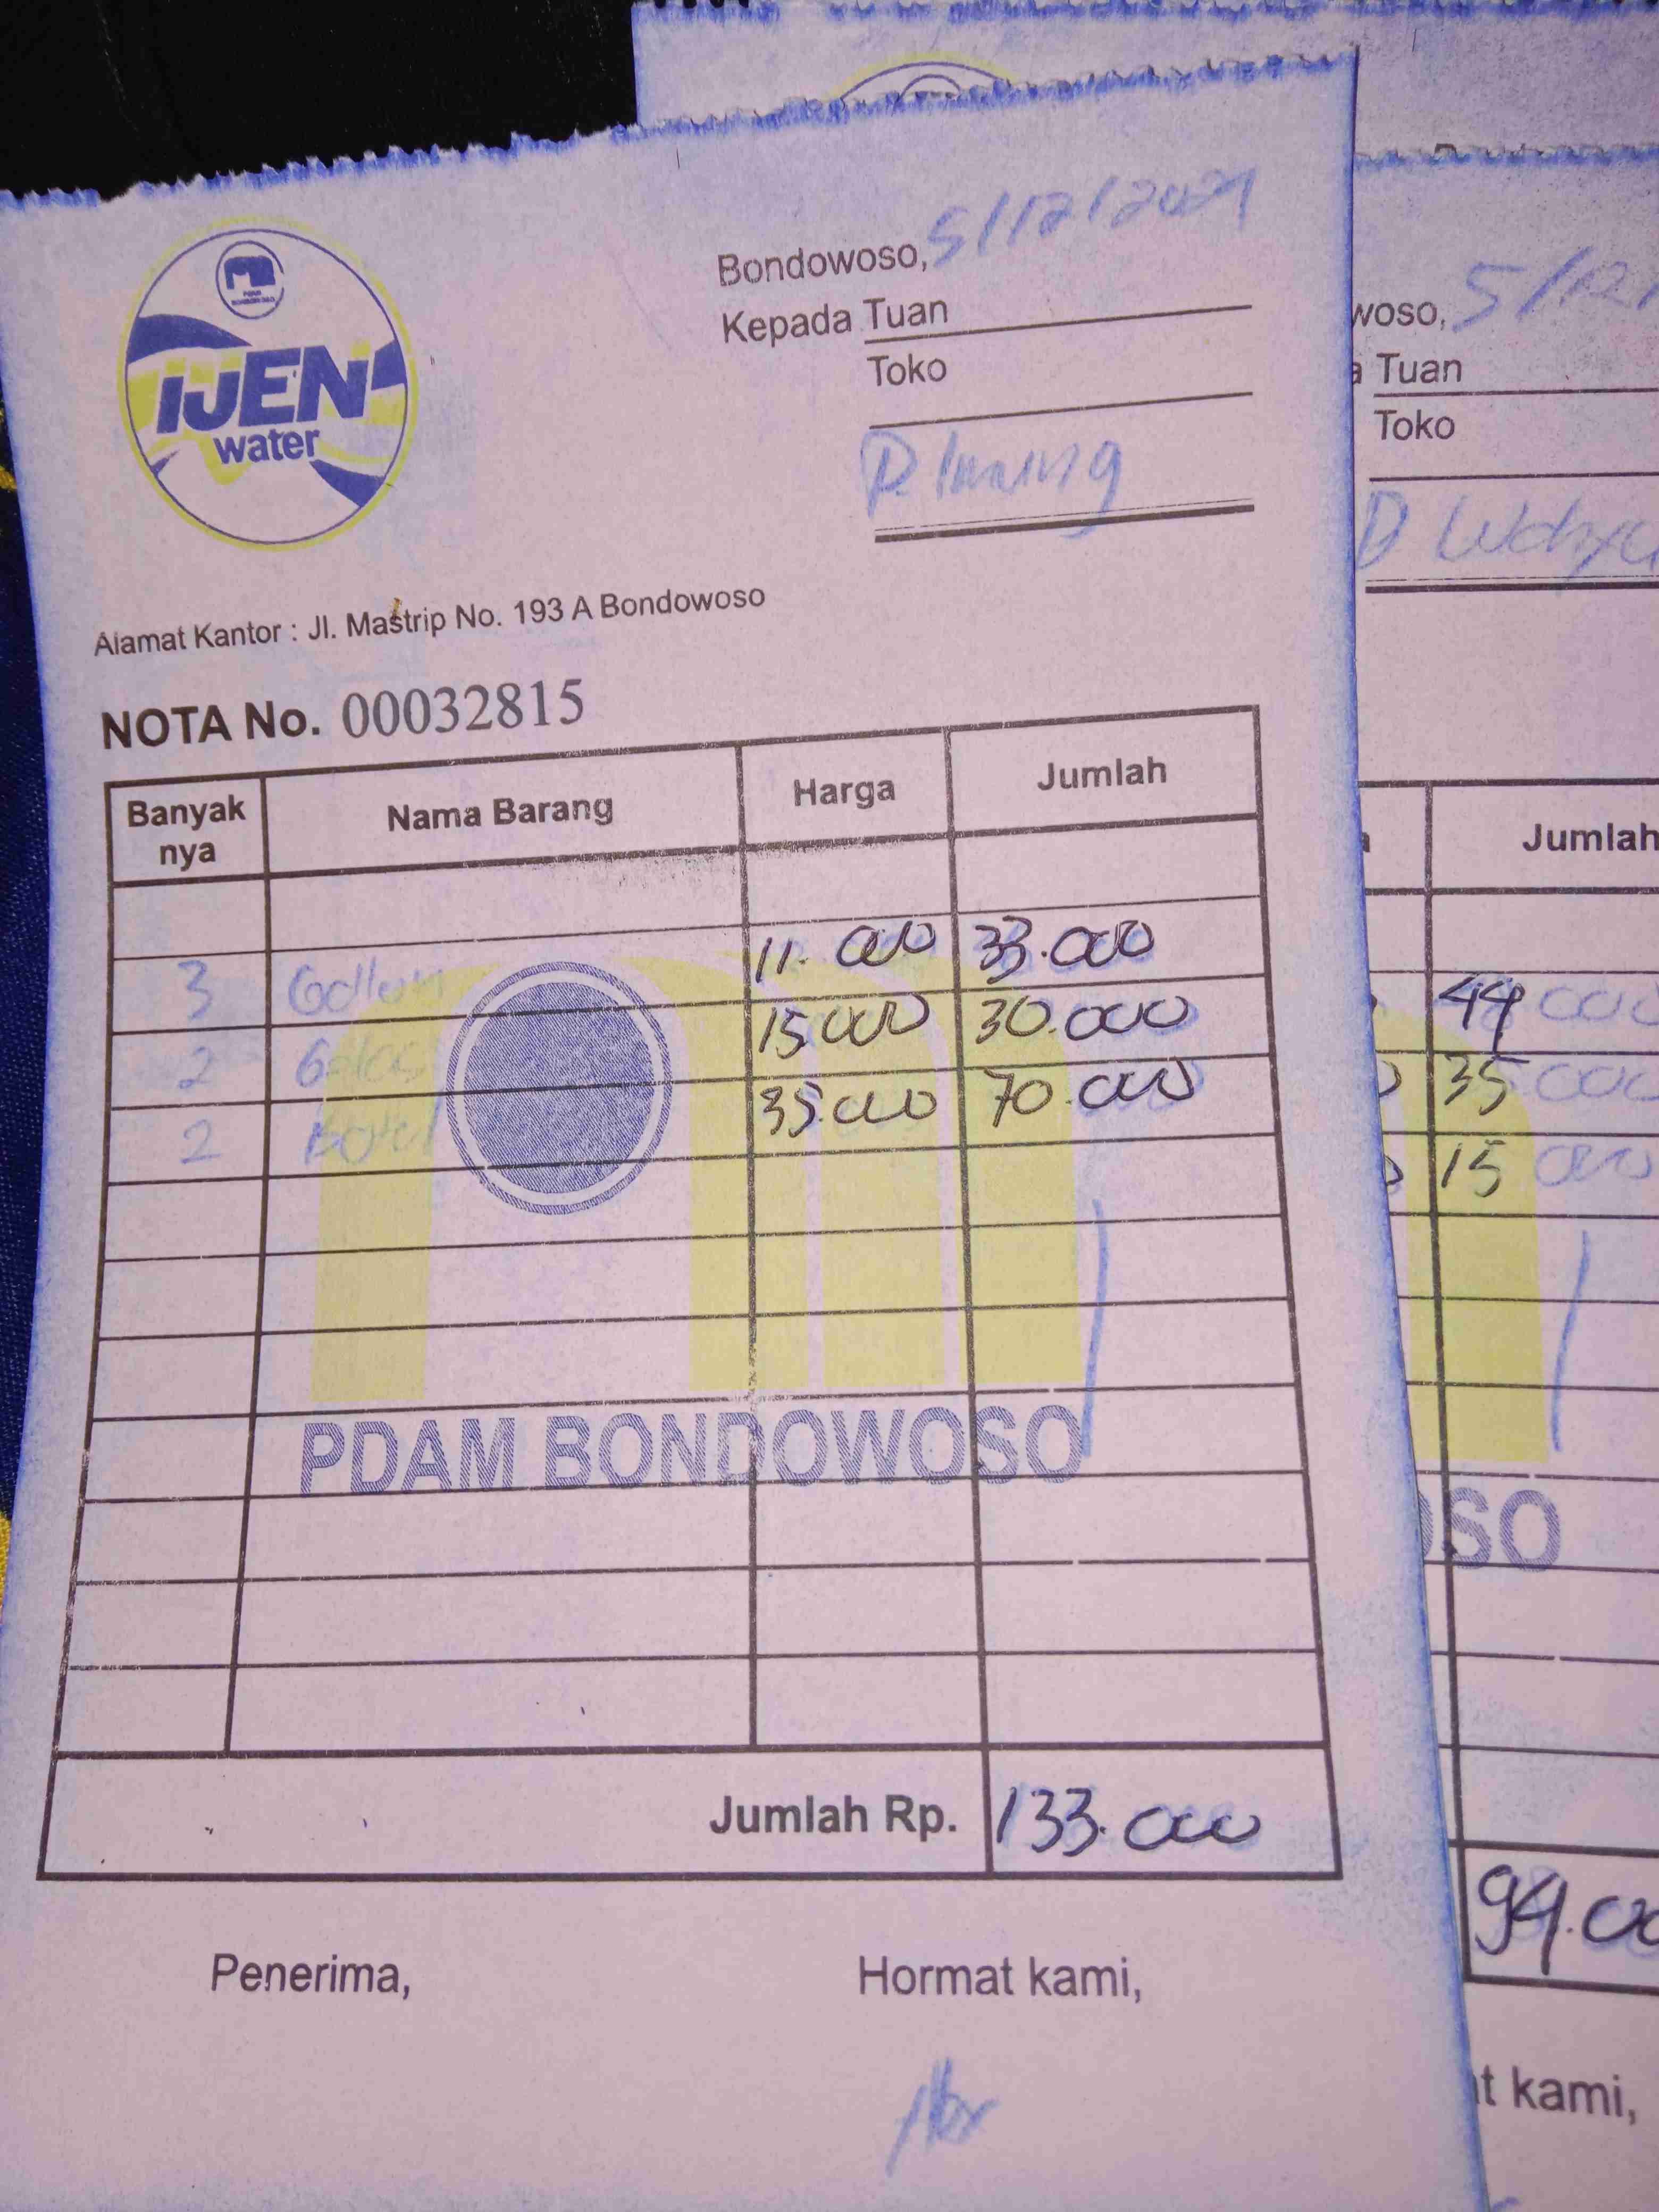 IJEN
water
Bondowoso, 5/12/2021
Kepada Tuan
Toko
Alamat Kantor : Jl. Mastrip No. 193 A Bondowoso
NOTA No. 00032815
Banyak nya Nama Barang Harga Jumlah
3 Gallon 11.000 33.000
2 Gelas 15.000 30.000
2 Botol 35.000 70.000
PDAM BONDOWOSO
Jumlah Rp. 133.000
Penerima, Hormat kami,
woso, 5/12/
a Tuan
Toko
Jumlah
44 000
35 000
15 000
OSO
94.00
t kami,